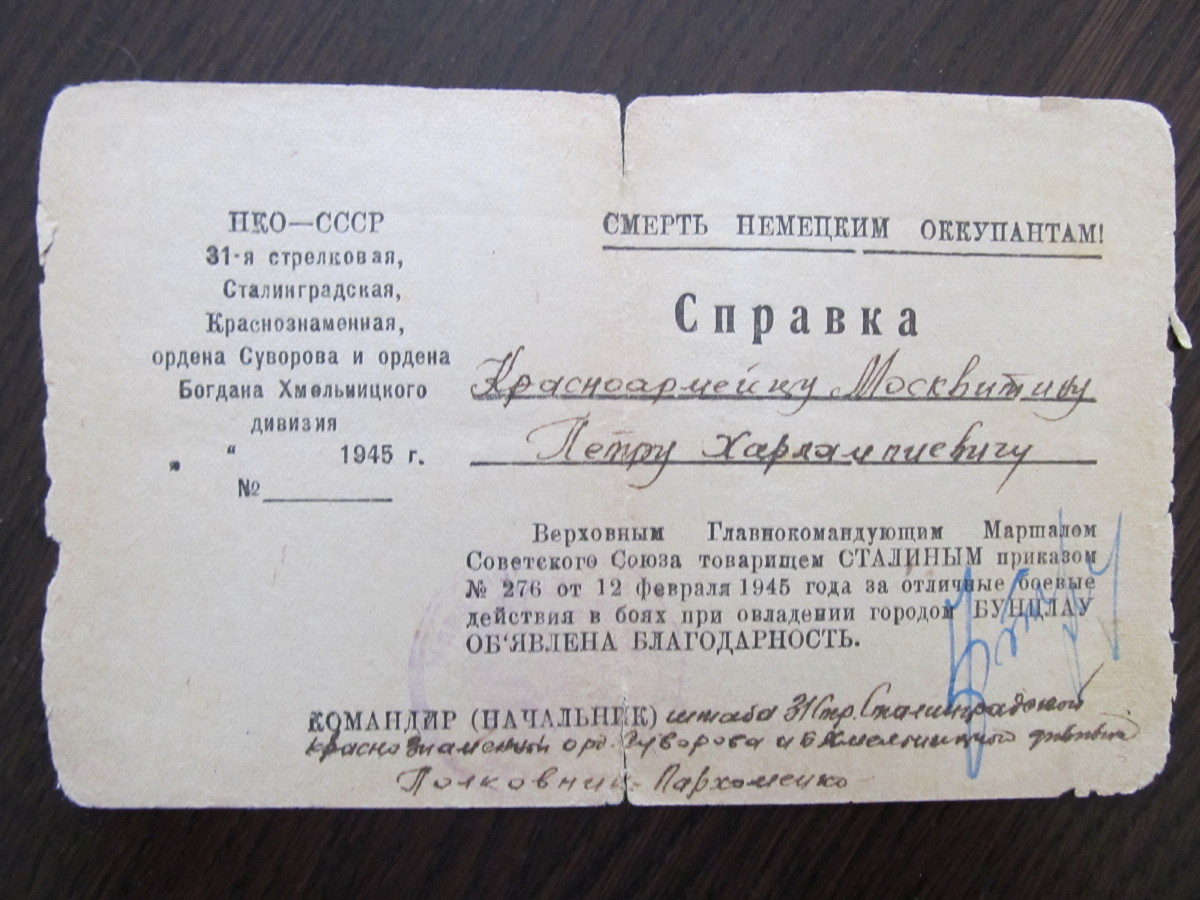 НКО—СССР
31-я стрелковая,
Сталинградская,
Краснознаменная,
ордена Суворова и ордена
Богдана Хмельницкого
дивизия
„ “ 1945 г.
№
СМЕРТЬ НЕМЕЦКИМ ОККУПАНТАМ!
Справка
Красноармейцу Москвитину
Петру Харлампиевичу
Верховным Главнокомандующим Маршалом
Советского Союза товарищем СТАЛИНЫМ приказом
№ 276 от 12 февраля 1945 года за отличные боевые
действия в боях при овладении городом БУНЦЛАУ
ОБ'ЯВЛЕНА БЛАГОДАРНОСТЬ.
КОМАНДИР (НАЧАЛЬНИК) штаба 31 стр. Сталинградской
краснознаменной орд. Суворова и Б Хмельницкого дивизии
Полковник Пархоменко